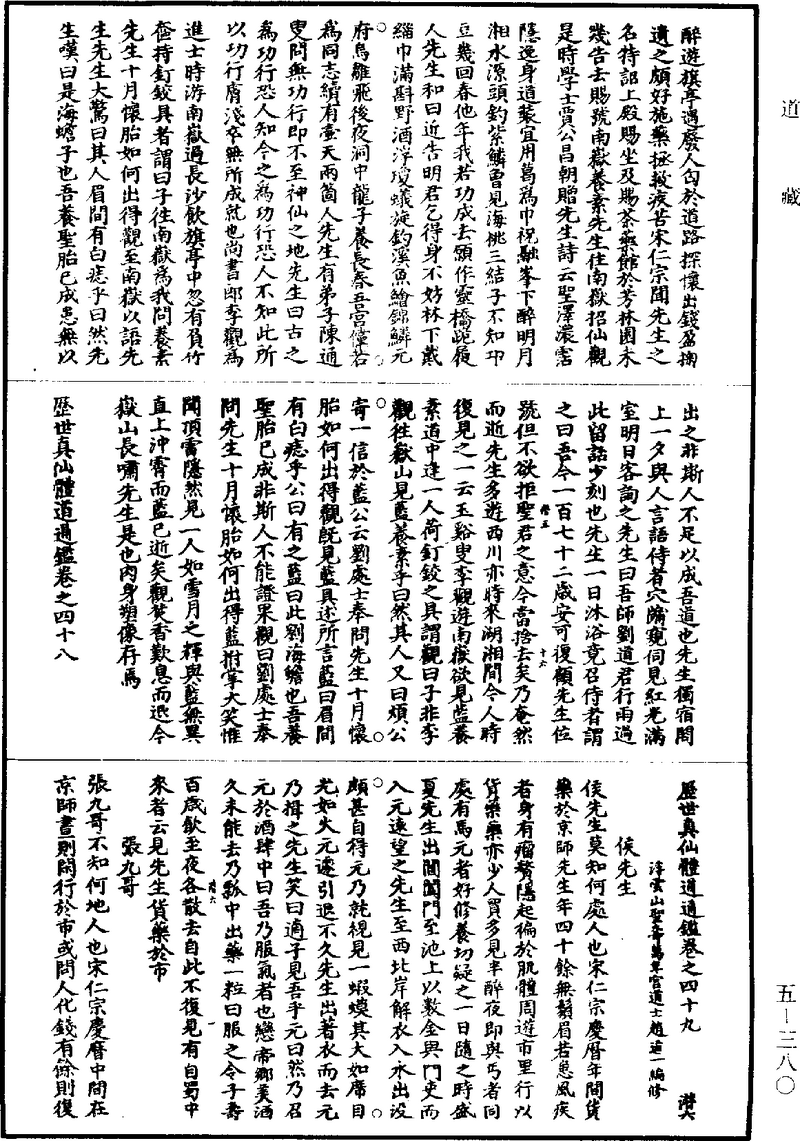 道藏
醉遊旗亭遇廢人匃於道路探懷出錢盈掬
遺之頗好施藥拯救疲苦宋仁宗聞先生之
名特詔上殿賜坐及賜茶藥館於芳林園未
幾告去賜號南嶽養素先生往南嶽招仙觀
是時學士賈公昌朝贈先生詩云聖澤濃霑
隱逸身道裝宜用葛為巾祝融峯下醉明月
湘水源頭釣紫鱗曾見海桃三結子不知卭
豆幾回春他年我若功成去願作靈橋跪履
人先生和曰近告明君乞得身不妨林下戴
緇巾滿斟野酒浮瓊蟻旋釣溪魚鱠錦鱗元
府烏雛飛後夜洞中龍子養長春吾宫僮若
為同志續有壺天兩箇人先生有弟子陳通
叟問無功行即不至神仙之地先生曰古之
為功行恐人知今之為功行恐人不知此所
以功行膚淺卒無所成就也尚書郎李觀為
進士時游南嶽過長沙飲旗亭中忽有負竹
奩持釘鉸具者謂曰子往南嶽為我問養素
先生十月懷胎如何出得觀至南嶽以語先
生先生大驚曰其人眉間有白痣乎曰然先
生嘆曰是海蟾子也吾養聖胎已成患無以
出之非斯人不足以成吾道也先生獨宿閤
上一夕與人言語侍者穴牖窺伺見紅光滿
室明日客詢之先生曰吾師劉道君行雨過
此留話少刻也先生一日沐浴竟召侍者謂
之曰吾今一百七十二歲安可復顧先生位
號但不欲拒聖君之意今當捨去矣乃奄然
而逝先生多遊西川亦時來湖湘間今人時
復見之一云玉谿叟李觀遊南嶽欲見藍養
素道中逢一人荷釘鉸之具謂觀曰子非李
觀往嶽山見藍養素乎曰然其人又曰煩公
寄一信於藍公云劉處士奉問先生十月懷
胎如何出得觀旣見藍具述所言藍曰眉間
有白痣乎公曰有之藍曰此劉海蟾也吾養
聖胎已成非斯人不能證果觀曰劉處士奉
問先生十月懷胎如何出得藍拊掌大笑惟
聞頂雷隱然見一人如雪月之輝與藍無異
直上沖霄而藍已逝矣觀焚香歎息而返今
嶽山長嘯先生是也肉身塑像存焉
歷世真仙體道通鑑卷之四十八
歷世真仙體道通鑑卷之四十九 潜六
浮雲山聖壽萬年宮道士趙道一編修
侯先生
侯先生莫知何處人也宋仁宗慶曆年間貨
藥於京師先生年四十餘無鬚眉若患風疾
者身有瘤贅隱起徧於肌體周遊市里行以
貨藥藥亦少人買多見半醉夜即與丐者同
處有馬元者好修養切疑之一日隨之時盛
夏先生出閶闔門至池上以數金與門吏而
入元遠望之先生至西北岸解衣入水出没
頗甚自得元乃就視見一蝦蟆其大如席目
光如火元遽引退不久先生出著衣而去元
乃揖之先生笑曰適子見吾乎元曰然乃召
元於酒肆中曰吾乃服氣者也戀帝鄉美酒
久未能去乃瓢中出藥一粒曰服之令子壽
百歲飲至夜各散去自此不復見有自蜀中
來者云見先生貨藥於市
張九哥
張九哥不知何地人也宋仁宗慶曆中間在
京師晝則閑行於市或問人化錢有餘則復
五—三八〇